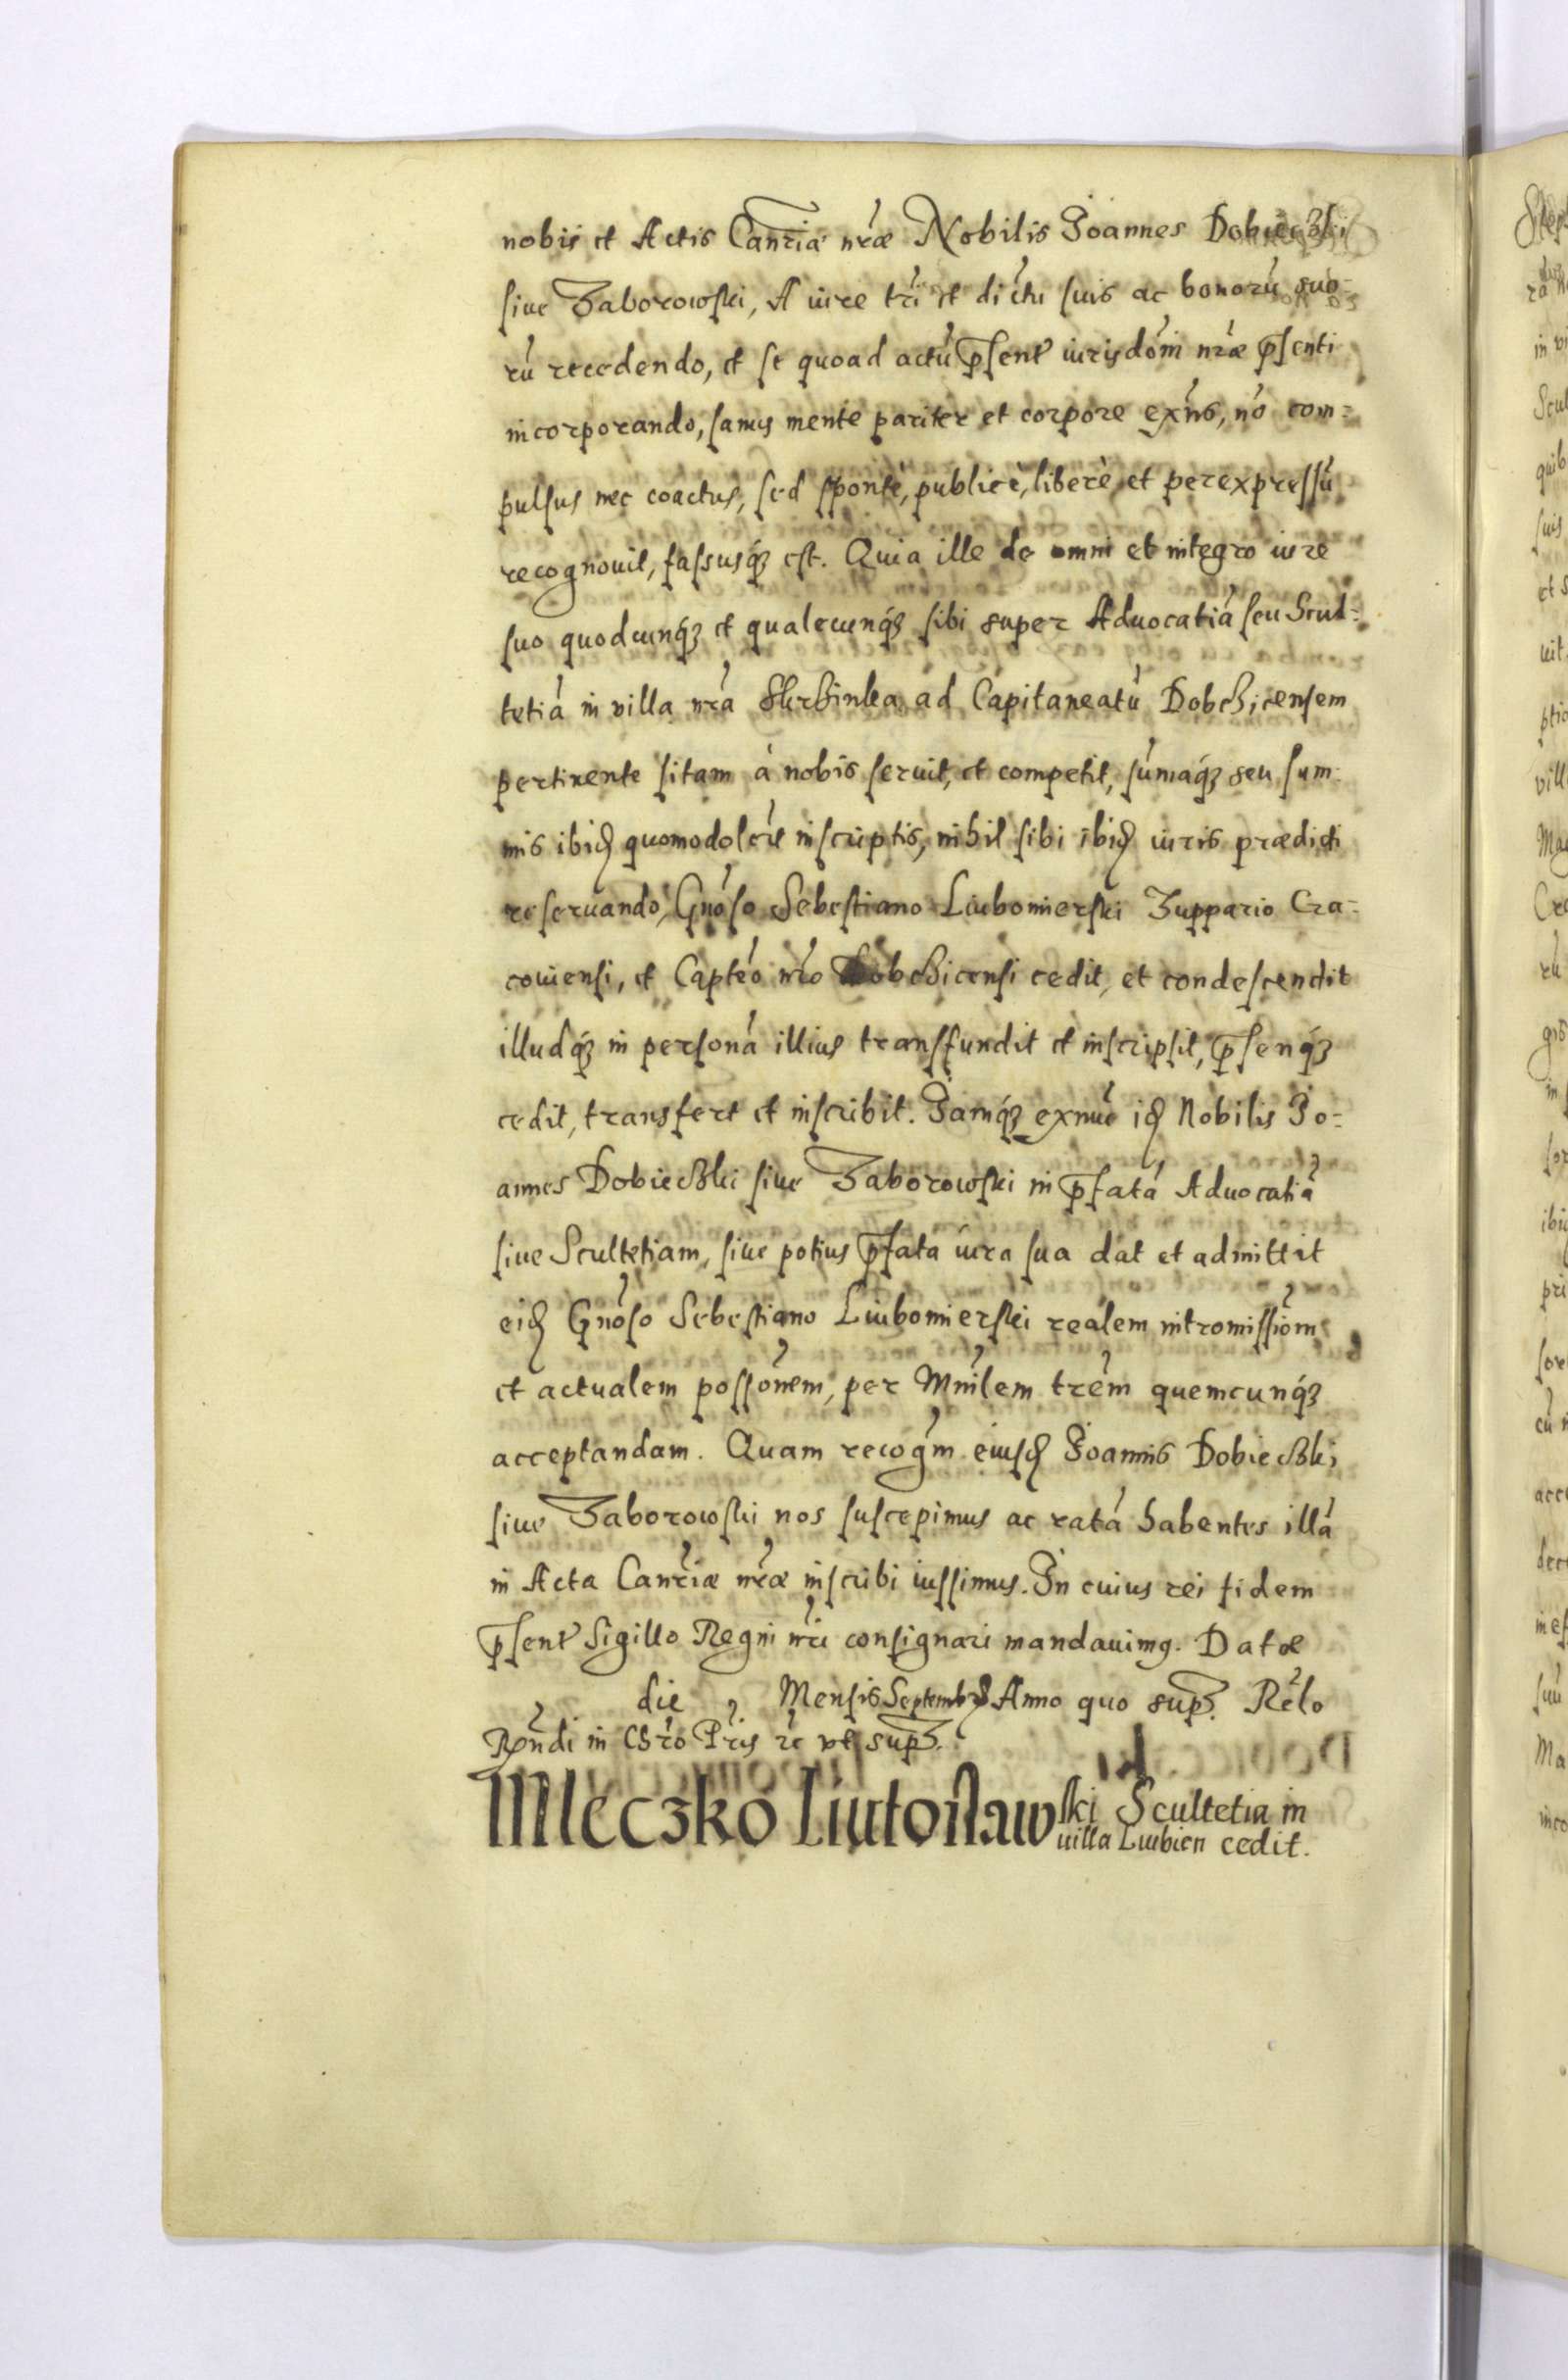 nobis et Actis Canriæ nræ Nobilis Joannes Dobieczki
siue Zaborowski, A iure tri et dictu suis ac bonorũ suo-
rũ recedendo, et se quoad actũ p̃sent iurisdom nræ p̃senti
incorporando, sanus mente pariter et corpore exñs, nõ com=
pulsus nec coactus, sed spontè, publicè, liberè, et per expressũ
recognouit, fassusq́ est. Quia ille de omni et integro iure
suo quodcunq́ et qualecunq́ sibi super Aduocatiã seu Scul=
tetiã in villa nrã Skrzinka ad Capitaneatũ Dobczicensem
pertinente sitam à nobis seruit, et competit, sũmaq́ seu sum
mis ibid quomodolcũ inscriptis, nihil sibi ibid iuris prædicti
reseruando, Gnõso Sebestiano Liubomierski Zuppario Cra=
couiensi, et Capteo nro Dobczicensi cedit, et condescendit
illudq́ in personã illius transfundit et inscripsit, p̃senq́
cedit, transfert et inscribit. Jamq́ exnuc id Nobilis Jo=
annes Dobieczki siue Zaborowski in p̃fatã Aduocatiã
siue Scultetiam, siue potius p̃fata iura sua dat et admittit
eid Gnõso Sebestiano Liubomierski realem intromissiõm
et actualem possõnem, per Mnilem trẽm quemcunq́
acceptandam. Quam recogm eiusd Joannis Dobieczki
siue Zaborowski nos suscepimus ac ratã habentes illã
in Acta Canriæ nræ inscribi iussimus. In cuius rei fidem
p̃sent Sigillo Regni nri consignari mandauimg. Datæ
die Mensis Septembr Anno quo sup. Relo
Rñdi in Chro Pris rc vt sup.
Mleczko Liutosławski Scultetia in
uilla Liubien cedit.